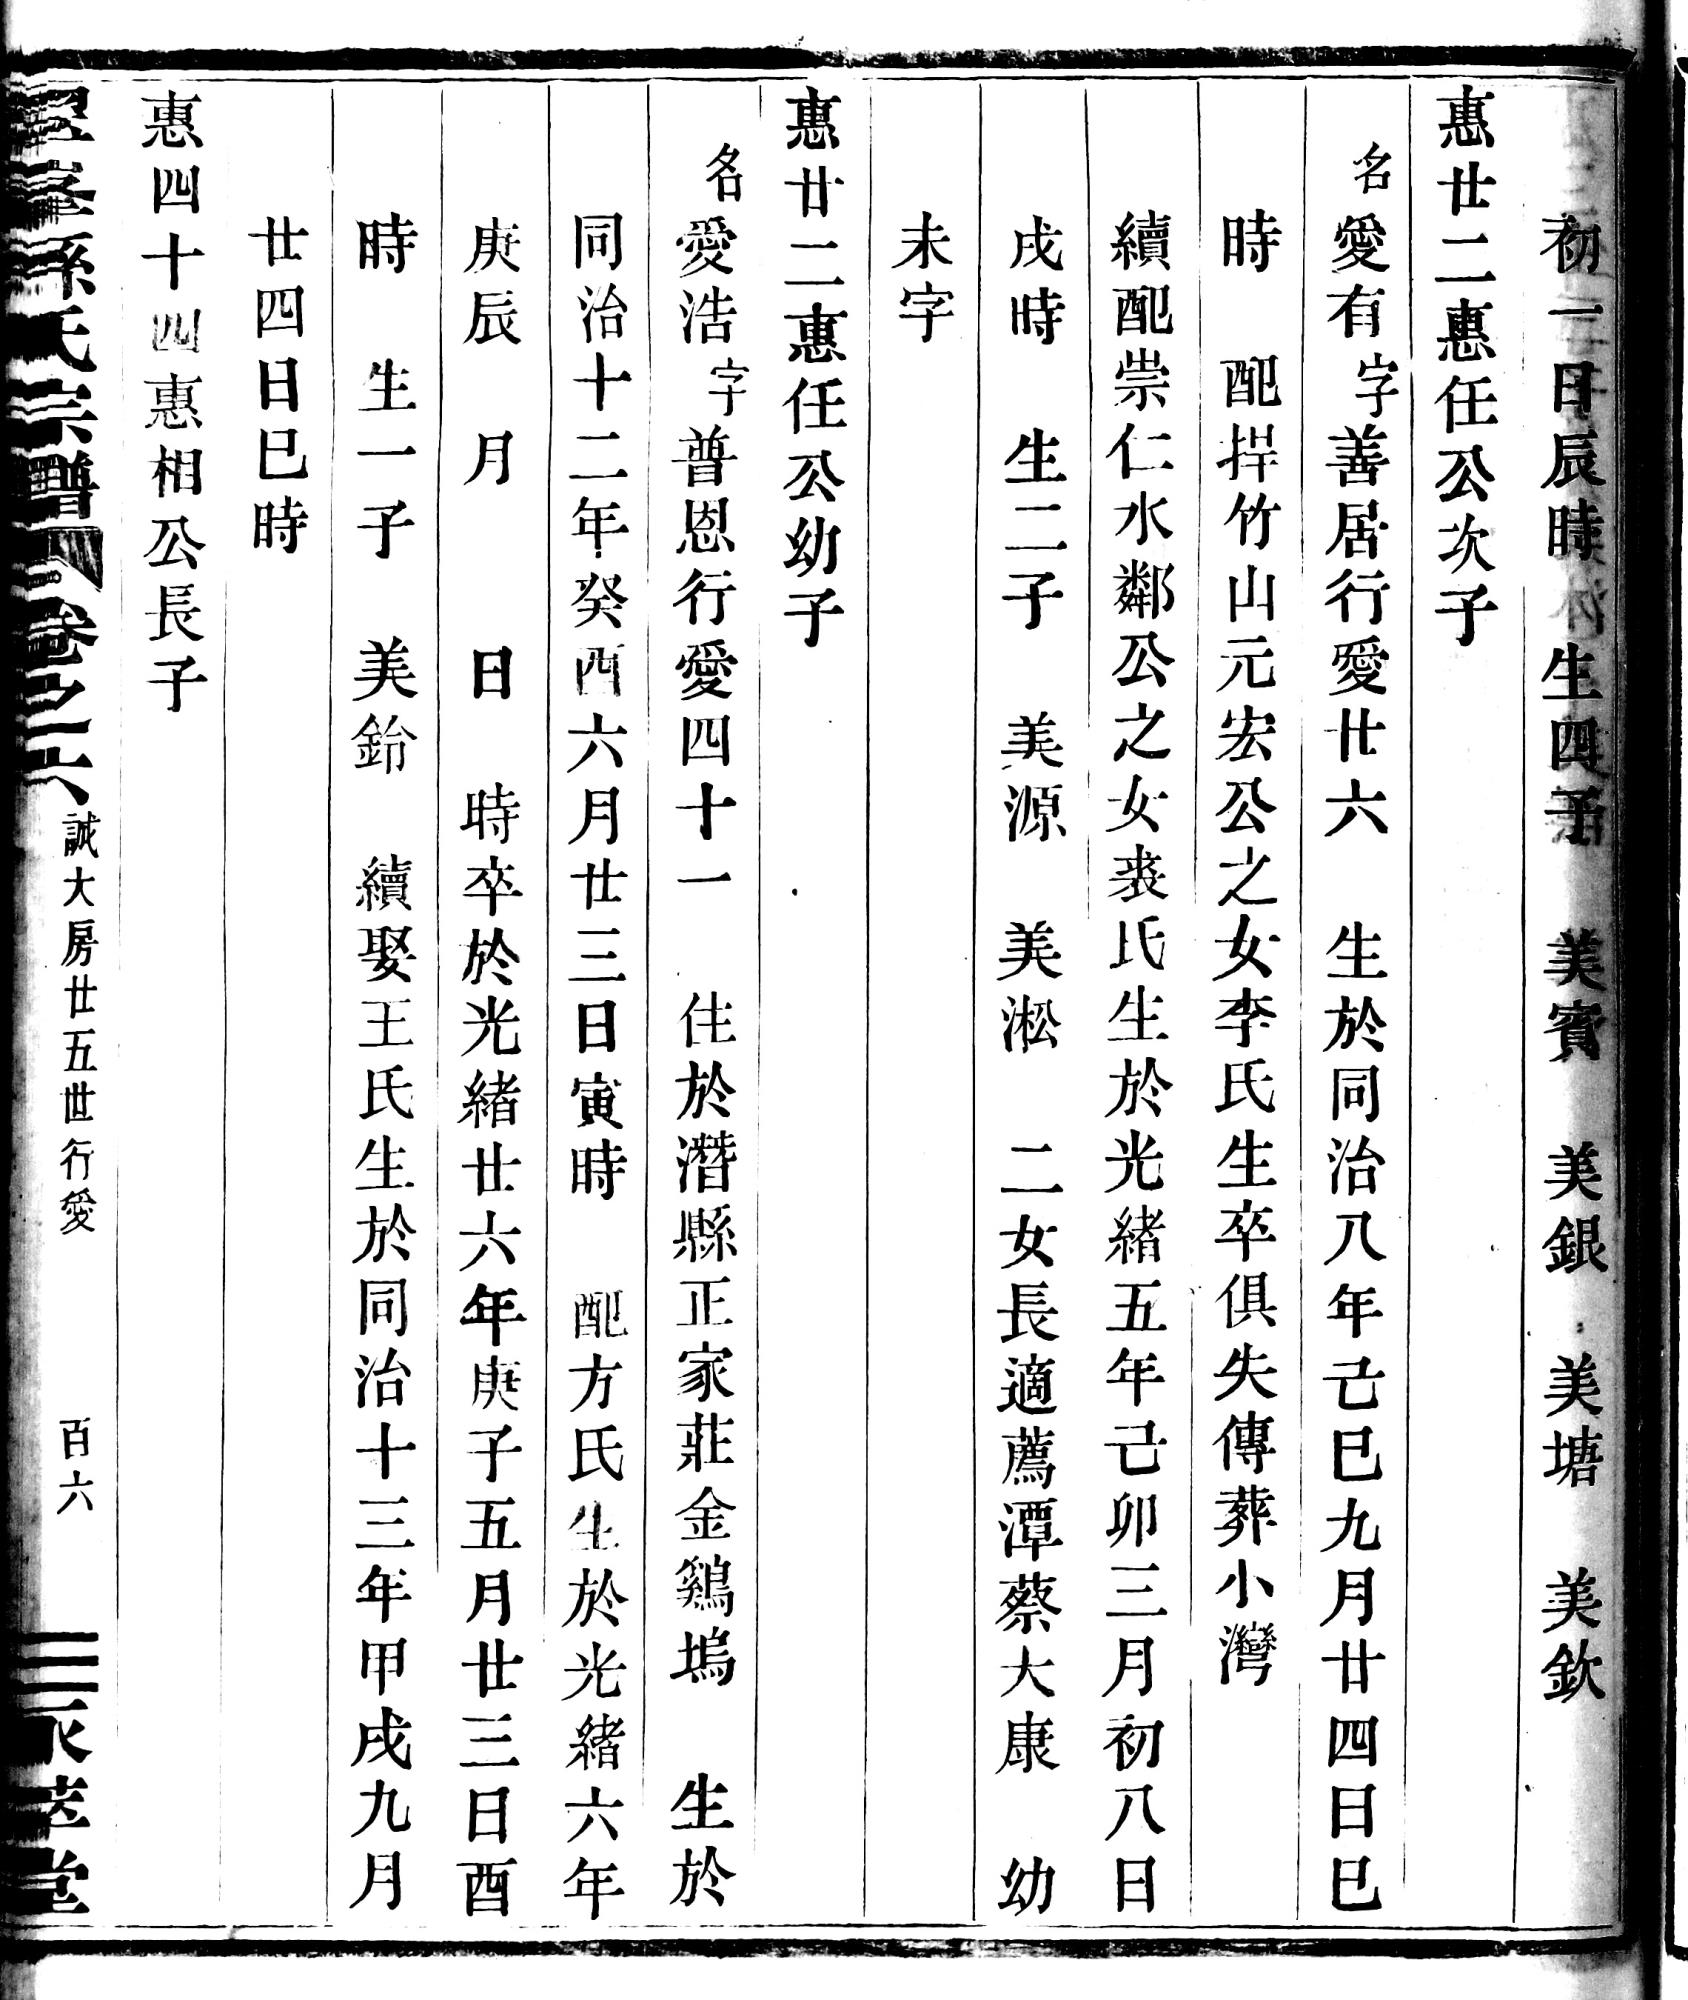 初一日辰時 生四子 美賓 美銀 美塘 美欽
惠廿二惠任公次子
名愛有字善居行愛廿六 生於同治八年己巳九月廿四日巳
時 配捍竹山元宏公之女李氏生卒俱失傳葬小灣
續配崇仁水鄰公之女裘氏生於光緒五年己卯三月初八日
戌時 生二子 美源 美淞 二女長適薦潭蔡大康 幼
未字
惠廿二惠任公幼子
名愛浩字普恩行愛四十一 住於潛縣正家莊金鷄塢 生於
同治十二年癸酉六月廿三日寅時 配方氏生於光緒六年
庚辰 月 日 時卒於光緒廿六年庚子五月廿三日酉
時 生一子 美鈴 續娶王氏生於同治十三年甲戌九月
廿四日巳時
惠四十四惠相公長子
孫氏宗譜 卷之六 誠大房廿五世行愛 百六 堂